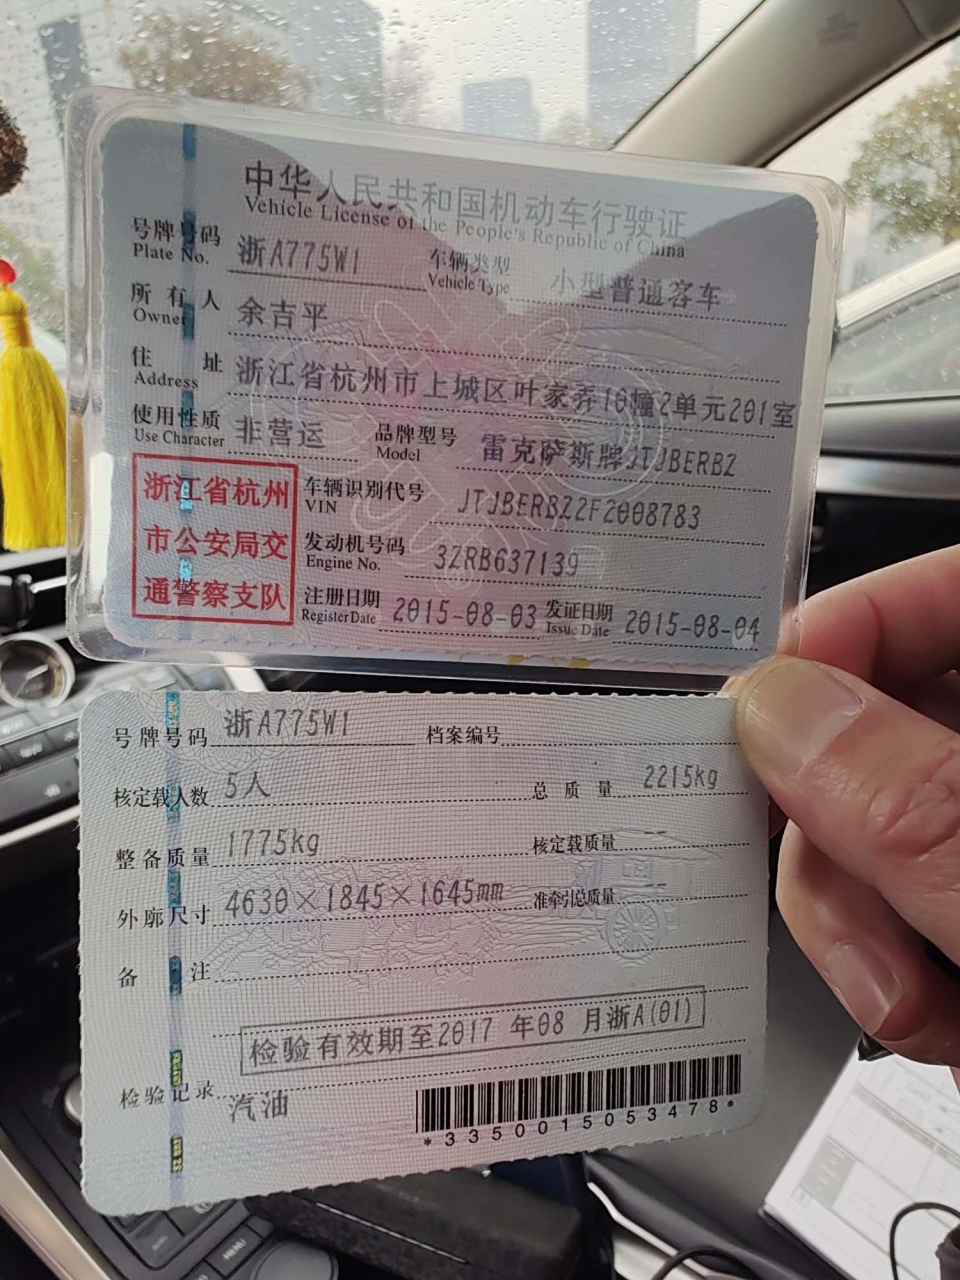 中华人民共和国机动车行驶证
Vehicle License of the People's Republic of China
号牌号码 浙A775W1 车辆类型 小型普通客车
Plate No. Vehicle Type
所有人 余吉平
Owner
住址 浙江省杭州市上城区叶家弄10幢2单元201室
Address
使用性质 非营运 品牌型号 雷克萨斯牌JTJBERBZ
Use Character Model
浙江省杭州
市公安局交
通警察支队
车辆识别代号 JTJBERBZ2F2008783
VIN
发动机号码 3ZRB637139
Engine No.
注册日期 2015-08-03 发证日期 2015-08-04
Register Date Issue Date
号牌号码 浙A775W1 档案编号
核定载人数 5人 总质量 2215kg
整备质量 1775kg 核定载质量 --
外廓尺寸 4630×1845×1645mm 准牵引总质量 --
备注
检验有效期至2017 年08 月浙A(01)
检验记录 汽油
*3350015053478*
MENU